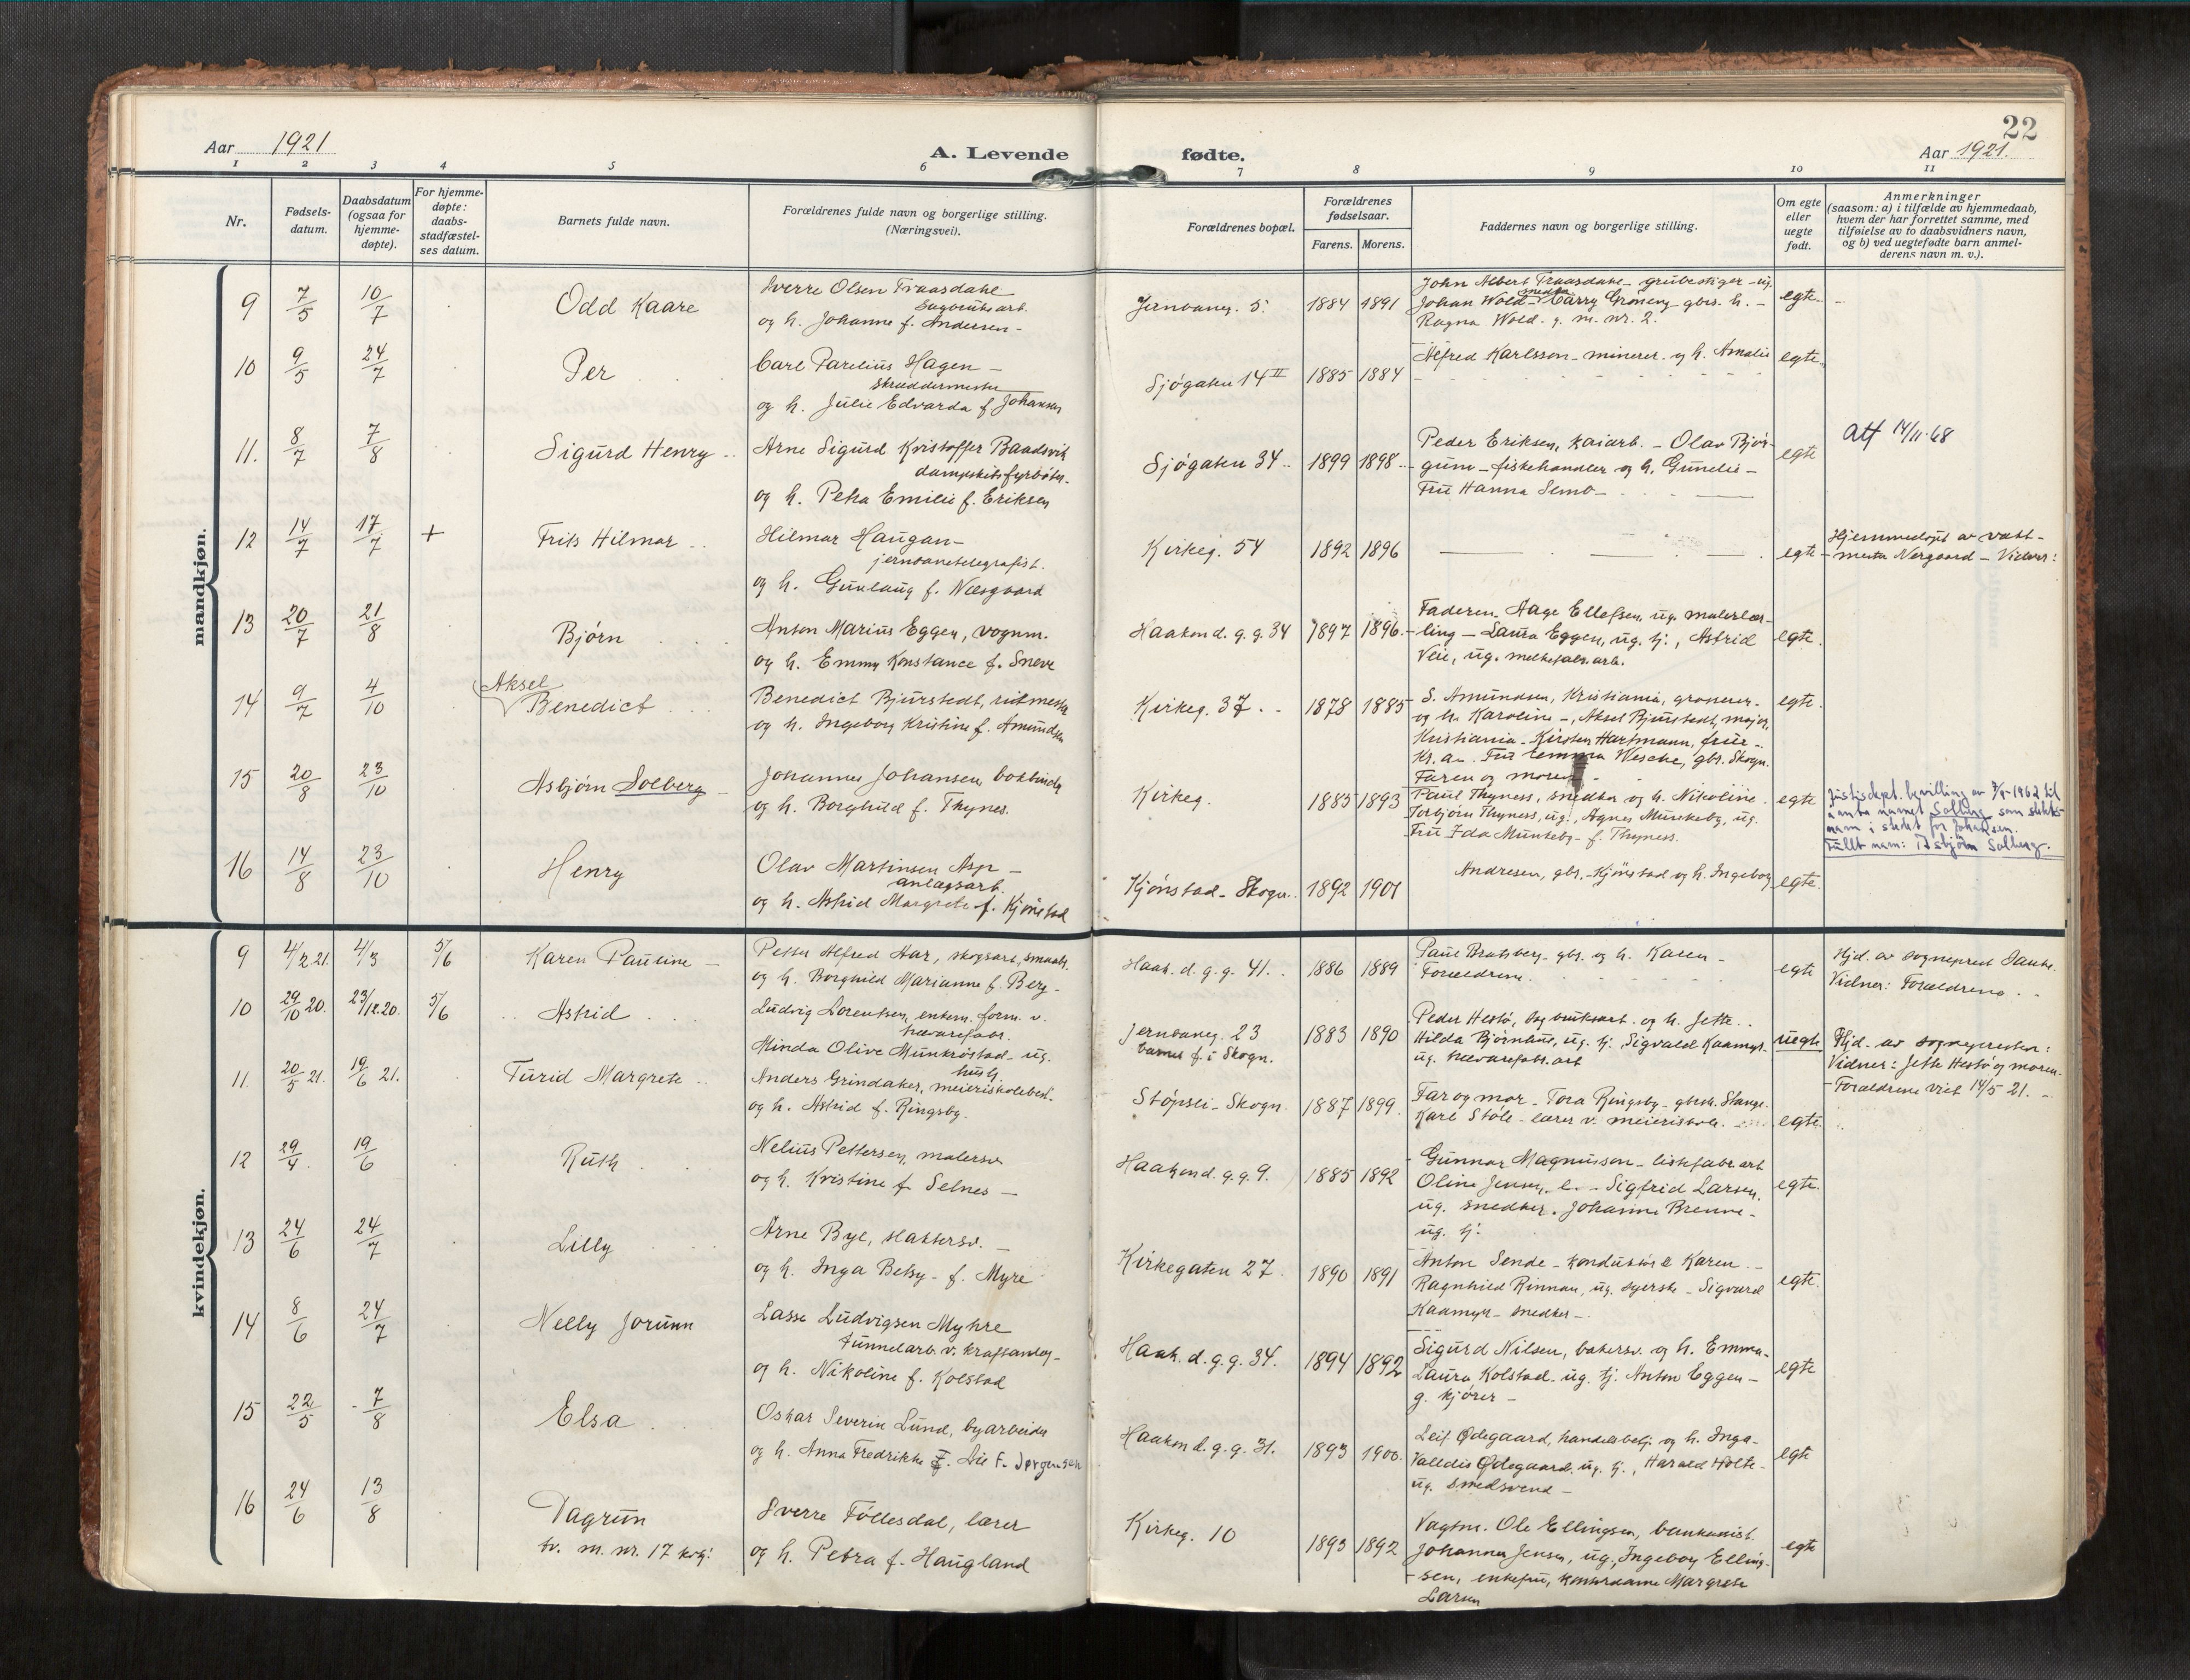 22
Aar 1921
A. Levende fødte.
Aar 1921.
1 2 3 4 5 6 7 8 9 10 11
Nr.
Fødsels-
datum.
Daabsdatum
(ogsaa for
hjemme-
døpte).
For hjemme-
døpte:
daabs-
stadfæstel-
ses datum.
Barnets fulde navn.
Forældrenes fulde navn og borgerlige stilling.
(Næringsvei).
Forældrenes bopæl.
Forældrenes
fødselsaar.
Farens. Morens.
Faddernes navn og borgerlige stilling.
Om egte
eller
uegte
født.
Anmerkninger
(saasom: a) i tilfælde av hjemmedaab,
hvem der har forrettet samme, med
tilføielse av to daabsvidners navn,
og b) ved uegtefødte barn anmel-
derens navn m. v.).
mandkjøn.
9 7/5 10/7 Odd Kaare
Sverre Olsen Traasdahl
Sagbruksarb.
og h. Johanne f. Andersen -
Jernbaneg. 5. 1884 1891
John Albert Traasdahl - grubestiger - ug.
Johan Wold - snedker Harry Grønseng - gbr. h. -
Ragna Wold. g. m. nr. 2.
egte
10 9/5 24/7 Per
Carl Parelius Hagen -
skræddermester
og h. Julie Edvarda f. Johansen
Sjøgaten 14 II 1885 1884
Alfred Karlsson - minerer. og h. Amalie
egte
11. 8/7 7/8 Sigurd Henry
Arne Sigurd Kristoffer Baadsvik
dampskibsfyrbøter.
og h. Petra Emilie f. Eriksen
Sjøgaten 34 1899 1898
Peder Eriksen, kaiarb. - Olav Bjør-
gum - fiskehandler og h. Gunelie -
Fru Hanna Semb -
egte
Att 14/11-68
12 14/7 17/7 + Frits Hilmar
Hilmar Haugan -
jernbanetelegrafist.
og h. Gunlaug f. Næsgaard
Kirkeg. 54 1892 1896
egte
Hjemmedøpt av vakt-
mester Nergaard - Vidner:
13 20/7 21/8 Bjørn
Anton Marius Eggen, vognm.
og h. Emmy Konstance f. Sneve
Haakon d. g. g. 34 1897 1896.
Faderen, Aage Ellefsen, ug. malerlær-
ling - Laura Eggen, ug. tj., Astrid
Veie, ug. melkefabr. arb.
egte
14 9/7 4/10 Aksel
Benedict
Benedict Bjurstedt, ritmester
og h. Ingeborg Kristine f. Amundsen
Kirkeg. 37. 1878 1885
S. Amundsen, Kristiania, grosserer -
og h. Karoline -, Aksel Bjurstedt, major,
Kristiania - Kirsten Hartmann, frue -.
Kr. a. - Fru Emma Wesche, gbr. Skogn.
Faren og moren -
egte
15 20/8 23/10 Asbjørn Solberg
Johannes Johansen, bokbinder
og h. Borghild f. Thynes.
Kirkeg. 1885 1893
Paul Thyness, snedker og h. Nikoline.
Torbjørn Thyness, ug., Agnes Munkeby, ug.
Fru Ida Munkeby - f. Thyness.
egte
Justisdept. bevilling av 7/9-1962 til
å anta namnet Solberg som slekts-
nam i stedet for Johansen.
Fullt nam: Asbjørn Solberg.
16 14/8 23/10 Henry
Olav Martinsen Asp -
anlægsarb.
og h. Astrid Margrete f. Kjønstad
Kjønstad - Skogn. 1892 1901
Andresen, gbr. - Kjønstad og h. Ingeborg
egte.
kvindekjøn.
9 4/2 21. 4/3 5/6 Karen Pauline -
Petter Alfred Aar, skogsarb, smaabr.
og h. Borghild Marianne f. Berg -
Haak. d. g. g. 41. 1886 1889
Paul Bratsberg - gbr. og h. Karen -
Forældrene.
egte
Hjd. av sogneprest Sauke.
Vidner: Forældrene.
10 29/10 20. 23/12.20. 5/6 Astrid
Ludvig Lorentsen, enkem. form. v.
trævarefabr.
Minda Olive Munkrøstad - ug.
hustj.
Jernbaneg. 23
barnet f. i Skogn.
1883 1890
Peder Hestø, sagbruksarb. og h. Jette.
Hilda Bjørnhus, ug. tj. Sigvald Kaamyr.
ug. trævarefabr. arb
uegte
Hjd. av sognepresten:
Vidner: Jette Hestø og moren.
Forældrene viet 14/5 21. -
11. 20/5 21. 19/6 21. Turid Margrete
Anders Grindaker, meieriskolebest.
og h. Astrid f. Ringsby.
Støpsli - Skogn. 1887 1899
Far og mor - Tora Ringsby - gbrd. Stange.
Karl Støle - lærer v. meieriskol.
egte.
12 29/4. 19/6 Ruth
Nelius Pettersen, malersv.
og h. Kristine f. Selnes -
Haakon d. g. g. 9. 1885 1892
Gunnar Magnusson - listfabr. arb
Oline Jensen, e. - Sigfrid Larsen,
ug. snedker. Johanne Brenne -
ug. tj.
egte.
13 24/6 24/7 Lilly
Arne Bye, slaktersv. -
og h. Inga Betsy - f. Myre
Kirkegaten 27. 1890 1891
Anton Sende - konduktør & Karen -
Ragnhild Rinnan, ug. syerske - Sigvard
Kaamyr - snedker -
egte.
14 8/6 24/7 Nelly Jorunn
Lasse Ludvigsen Myhre
tunnelarb. v. kraftanlæg -
og h. Nikoline f. Kolstad
Haak. d. g. g. 34. 1894 1892
Sigurd Nilsen, bakersv. og h. Emma -
Laura Kolstad - ug. tj. Anton Eggen -
g. kjører -
egte
15 22/5 7/8 Elsa
Oskar Severin Lund, byarbeider
og h. Anna Fredrikke f. Lie f. Jørgensen
Haakon d. g. g. 31. 1893 1900.
Leif Ødegaard, handelsbetj. og h. Inga -
Valldis Ødegaard. ug. tj., Harald Holte -
ug. smedsvend -
egte
16 24/6 13/8 Dagrun
tv. m. nr. 17 kvkj.
Sverre Føllesdal, lærer
og h. Petra f. Haugland
Kirkeg. 10 1893 1892
Vagtm. Ole Ellingsen, bankassist.
Johannes Jensen, ug., Ingeborg Elling-
sen, enkefru, kontordame Margrete
Larsen
egte